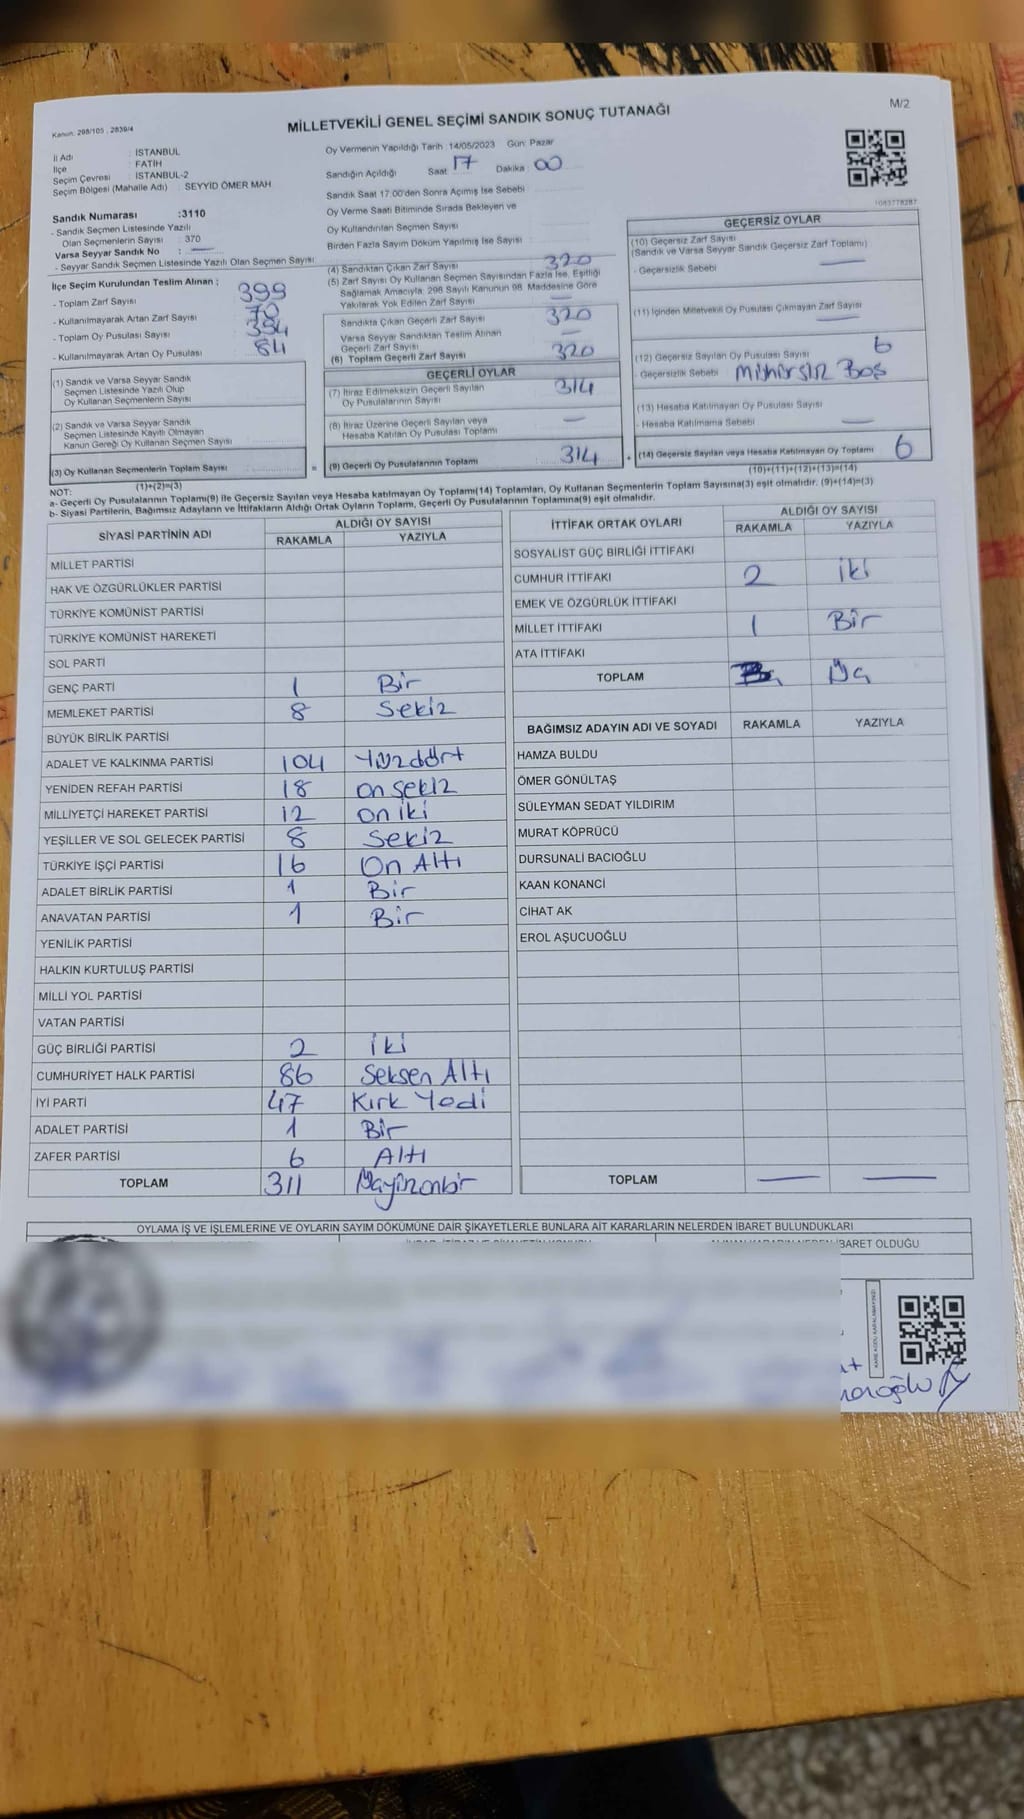 M/2
Kanun: 298/105 , 2839/4
MİLLETVEKİLİ GENEL SEÇİMİ SANDIK SONUÇ TUTANAĞI
İl Adı : İSTANBUL
İlçe : FATİH
Seçim Çevresi : İSTANBUL-2
Seçim Bölgesi (Mahalle Adı) : SEYYİD ÖMER MAH
Oy Vermenin Yapıldığı Tarih :14/05/2023 Gün: Pazar
Sandığın Açıldığı Saat 17 Dakika 00
Sandık Saat 17:00'den Sonra Açılmış İse Sebebi
Oy Verme Saati Bitiminde Sırada Bekleyen ve
Oy Kullandırılan Seçmen Sayısı
Birden Fazla Sayım Döküm Yapılmış İse Sayısı
Sandık Numarası :3110
- Sandık Seçmen Listesinde Yazılı
Olan Seçmenlerin Sayısı : 370
Varsa Seyyar Sandık No : —
- Seyyar Sandık Seçmen Listesinde Yazılı Olan Seçmen Sayısı
İlçe Seçim Kurulundan Teslim Alınan :
- Toplam Zarf Sayısı 399
- Kullanılmayarak Artan Zarf Sayısı 70
- Toplam Oy Pusulası Sayısı
- Kullanılmayarak Artan Oy Pusulası 84
(1) Sandık ve Varsa Seyyar Sandık
Seçmen Listesinde Yazılı Olup
Oy Kullanan Seçmenlerin Sayısı
(2) Sandık ve Varsa Seyyar Sandık
Seçmen Listesinde Kayıtlı Olmayan
Kanun Gereği Oy Kullanan Seçmen Sayısı
(3) Oy Kullanan Seçmenlerin Toplam Sayısı
(1)+(2)=(3)
(4) Sandıktan Çıkan Zarf Sayısı 320
(5) Zarf Sayısı Oy Kullanan Seçmen Sayısından Fazla İse, Eşitliği
Sağlamak Amacıyla; 298 Sayılı Kanunun 98. Maddesine Göre
Yakılarak Yok Edilen Zarf Sayısı —
Sandıkta Çıkan Geçerli Zarf Sayısı 320
Varsa Seyyar Sandıktan Teslim Alınan
Geçerli Zarf Sayısı —
(6) Toplam Geçerli Zarf Sayısı 320
GEÇERLİ OYLAR
(7) İtiraz Edilmeksizin Geçerli Sayılan
Oy Pusulalarının Sayısı 314
(8) İtiraz Üzerine Geçerli Sayılan veya
Hesaba Katılan Oy Pusulası Toplamı —
= (9) Geçerli Oy Pusulalarının Toplamı 314
1043778287
GEÇERSİZ OYLAR
(10) Geçersiz Zarf Sayısı
(Sandık ve Varsa Seyyar Sandık Geçersiz Zarf Toplamı)
- Geçersizlik Sebebi —
(11) İçinden Milletvekili Oy Pusulası Çıkmayan Zarf Sayısı
—
(12) Geçersiz Sayılan Oy Pusulası Sayısı 6
- Geçersizlik Sebebi Mühürsüz Boş
(13) Hesaba Katılmayan Oy Pusulası Sayısı
- Hesaba Katılmama Sebebi —
+ (14) Geçersiz Sayılan veya Hesaba Katılmayan Oy Toplamı 6
(10)+(11)+(12)+(13)=(14)
NOT:
a- Geçerli Oy Pusulalarının Toplamı(9) ile Geçersiz Sayılan veya Hesaba katılmayan Oy Toplamı(14) Toplamları, Oy Kullanan Seçmenlerin Toplam Sayısına(3) eşit olmalıdır. (9)+(14)=(3)
b- Siyasi Partilerin, Bağımsız Adayların ve İttifakların Aldığı Ortak Oyların Toplamı, Geçerli Oy Pusulalarının Toplamına(9) eşit olmalıdır.
SİYASİ PARTİNİN ADI ALDIĞI OY SAYISI
RAKAMLA YAZIYLA
MİLLET PARTİSİ
HAK VE ÖZGÜRLÜKLER PARTİSİ
TÜRKİYE KOMÜNİST PARTİSİ
TÜRKİYE KOMÜNİST HAREKETİ
SOL PARTİ
GENÇ PARTİ 1 Bir
MEMLEKET PARTİSİ 8 Sekiz
BÜYÜK BİRLİK PARTİSİ
ADALET VE KALKINMA PARTİSİ 104 Yüzdört
YENİDEN REFAH PARTİSİ 18 on sekiz
MİLLİYETÇİ HAREKET PARTİSİ 12 on iki
YEŞİLLER VE SOL GELECEK PARTİSİ 8 Sekiz
TÜRKİYE İŞÇİ PARTİSİ 16 On Altı
ADALET BİRLİK PARTİSİ 1 Bir
ANAVATAN PARTİSİ 1 Bir
YENİLİK PARTİSİ
HALKIN KURTULUŞ PARTİSİ
MİLLİ YOL PARTİSİ
VATAN PARTİSİ
GÜÇ BİRLİĞİ PARTİSİ 2 iki
CUMHURİYET HALK PARTİSİ 86 Seksen Altı
İYİ PARTİ 47 Kırk Yedi
ADALET PARTİSİ 1 Bir
ZAFER PARTİSİ 6 Altı
TOPLAM 311
İTTİFAK ORTAK OYLARI ALDIĞI OY SAYISI
RAKAMLA YAZIYLA
SOSYALİST GÜÇ BİRLİĞİ İTTİFAKI
CUMHUR İTTİFAKI 2 iki
EMEK VE ÖZGÜRLÜK İTTİFAKI
MİLLET İTTİFAKI 1 Bir
ATA İTTİFAKI
TOPLAM Üç
BAĞIMSIZ ADAYIN ADI VE SOYADI RAKAMLA YAZIYLA
HAMZA BULDU
ÖMER GÖNÜLTAŞ
SÜLEYMAN SEDAT YILDIRIM
MURAT KÖPRÜCÜ
DURSUNALİ BACIOĞLU
KAAN KONANCİ
CİHAT AK
EROL AŞUCUOĞLU
TOPLAM — —
OYLAMA İŞ VE İŞLEMLERİNE VE OYLARIN SAYIM DÖKÜMÜNE DAİR ŞİKAYETLERLE BUNLARA AİT KARARLARIN NELERDEN İBARET BULUNDUKLARI
İBARET OLDUĞU